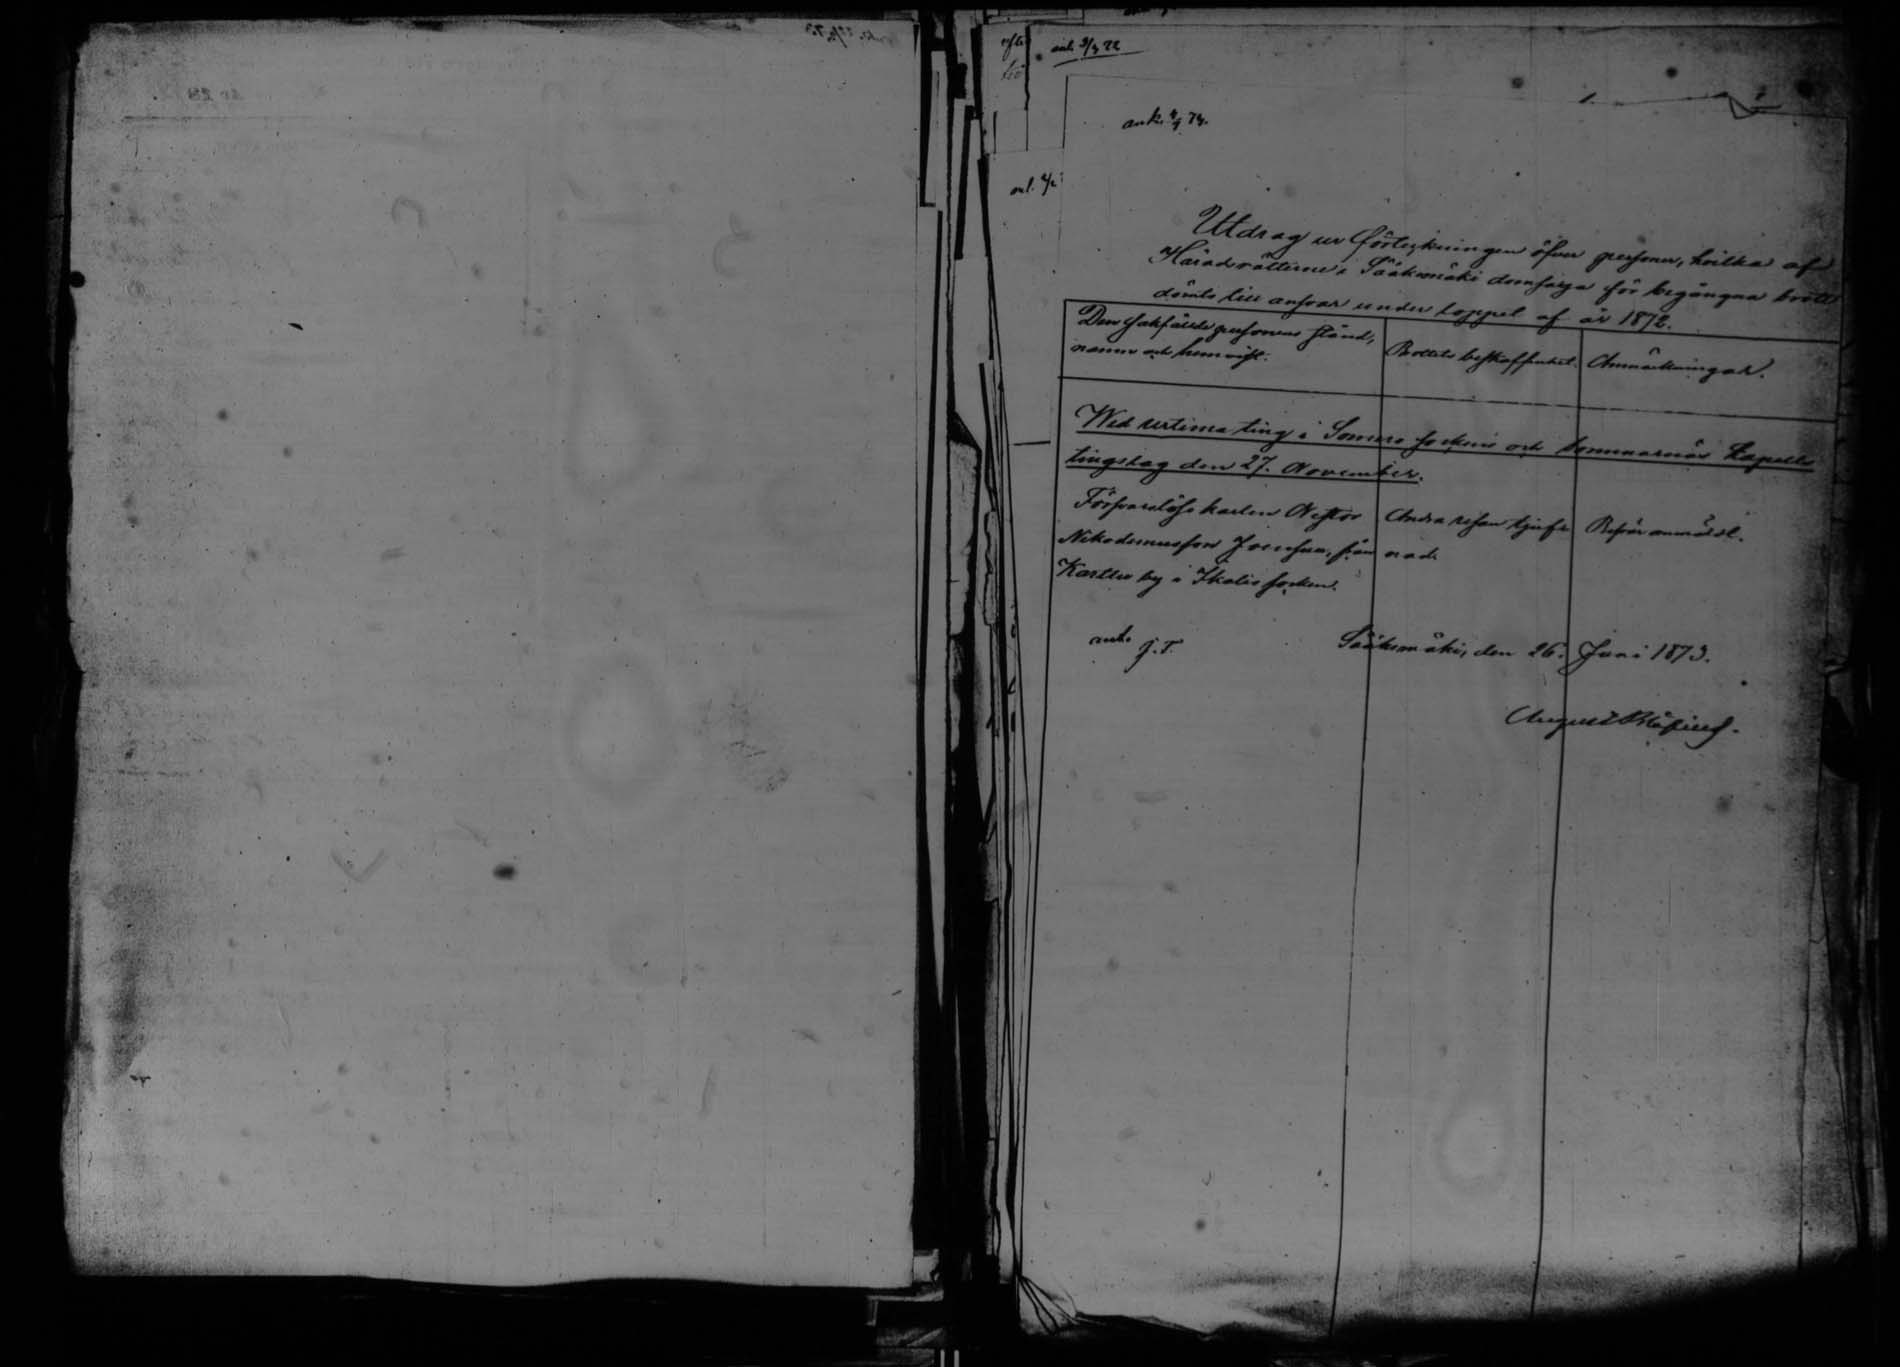 ank. 4/9 73.
Utdrag ur Förteckningen öfver personer, hvilka af
Häradsrätterne i Sääksmäki domsaga för begångna brott
dömts till ansvar under loppet af år 1872.
Den sakfälde personens stånd,
namn och hemvist.
Brottets beskaffenhet.
Anmärkningar.
Wid urtima ting i Somero sockens och Sommarnäs Kapells
tingslag den 27. November.
Försvarslöse karlen Nestor
Nikodemusson Josefsson, från
by i Ikalis socken.
Andra resan tjufv-
nad.
Besvär anmäldt.
ank.
J. T.
Sääksmäki, den 26. Juni 1873.
August